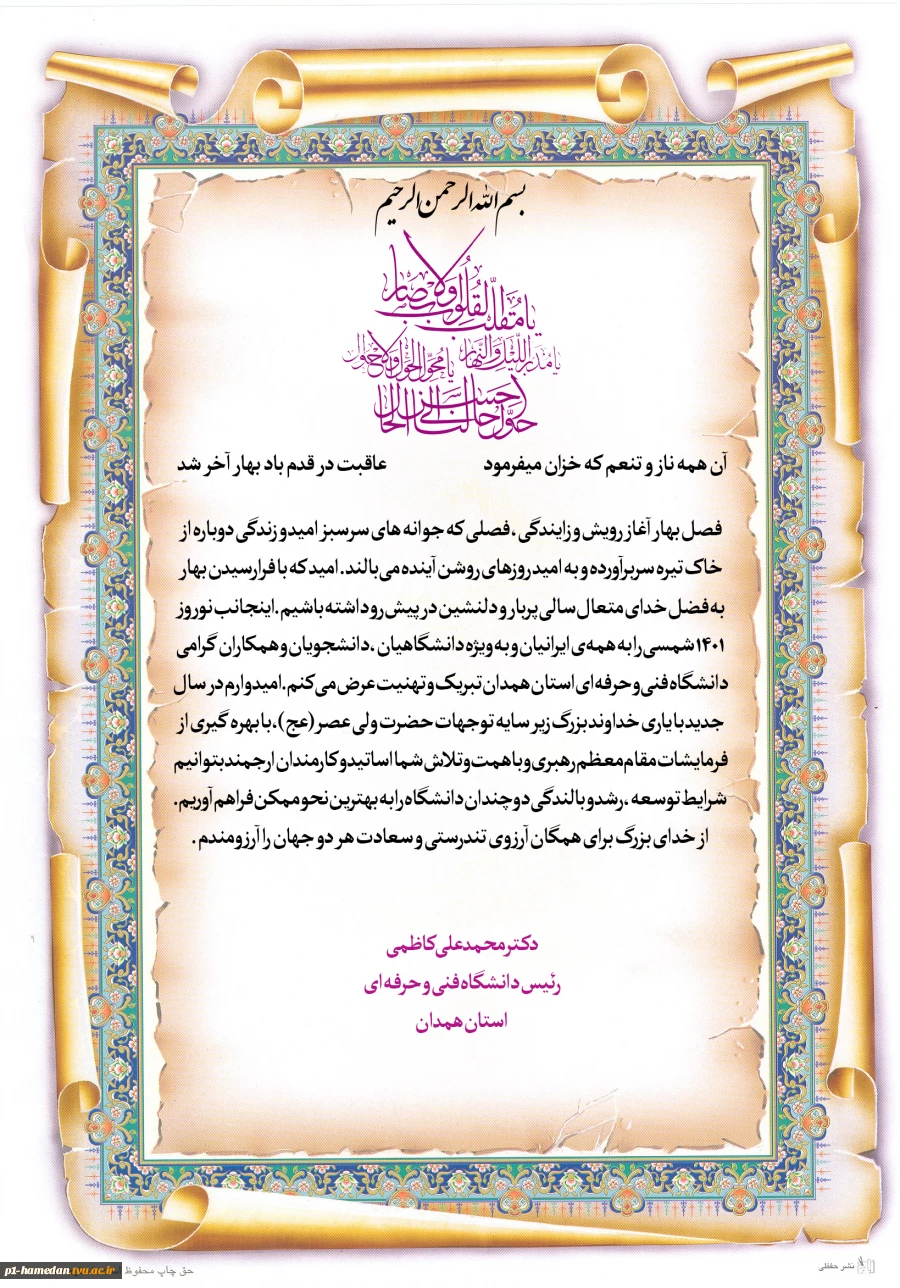 بسم الله الرحمن الرحیم
یا مقلب القلوب والابصار
یا مدبر اللیل والنهار یا محول الحول والاحوال
حول حالنا الی احسن الحال
آن همه ناز و تنعم که خزان میفرمود عاقبت در قدم باد بهار آخر شد
فصل بهار آغاز رویش و زایندگی ، فصلی که جوانه های سرسبز امید و زندگی دوباره از
خاک تیره سر برآورده و به امید روزهای روشن آینده می بالند. امید که با فرا رسیدن بهار
به فضل خدای متعال سالی پربار و دلنشین در پیش رو داشته باشیم. اینجانب نوروز
۱۴۰۱ شمسی را به همه‌ی ایرانیان و به ویژه دانشگاهیان ، دانشجویان و همکاران گرامی
دانشگاه فنی و حرفه ای استان همدان تبریک و تهنیت عرض می کنم. امیدوارم در سال
جدید با یاری خداوند بزرگ زیر سایه توجهات حضرت ولی عصر (عج)، با بهره گیری از
فرمایشات مقام معظم رهبری و با همت و تلاش شما اساتید و کارمندان ارجمند بتوانیم
شرایط توسعه ، رشد و بالندگی دو چندان دانشگاه را به بهترین نحو ممکن فراهم آوریم.
از خدای بزرگ برای همگان آرزوی تندرستی و سعادت هر دو جهان را آرزومندم .
دکتر محمد علی کاظمی
رئیس دانشگاه فنی و حرفه ای
استان همدان
نشر حفظی
حق چاپ محفوظ
p1-hamedan.tvu.ac.ir